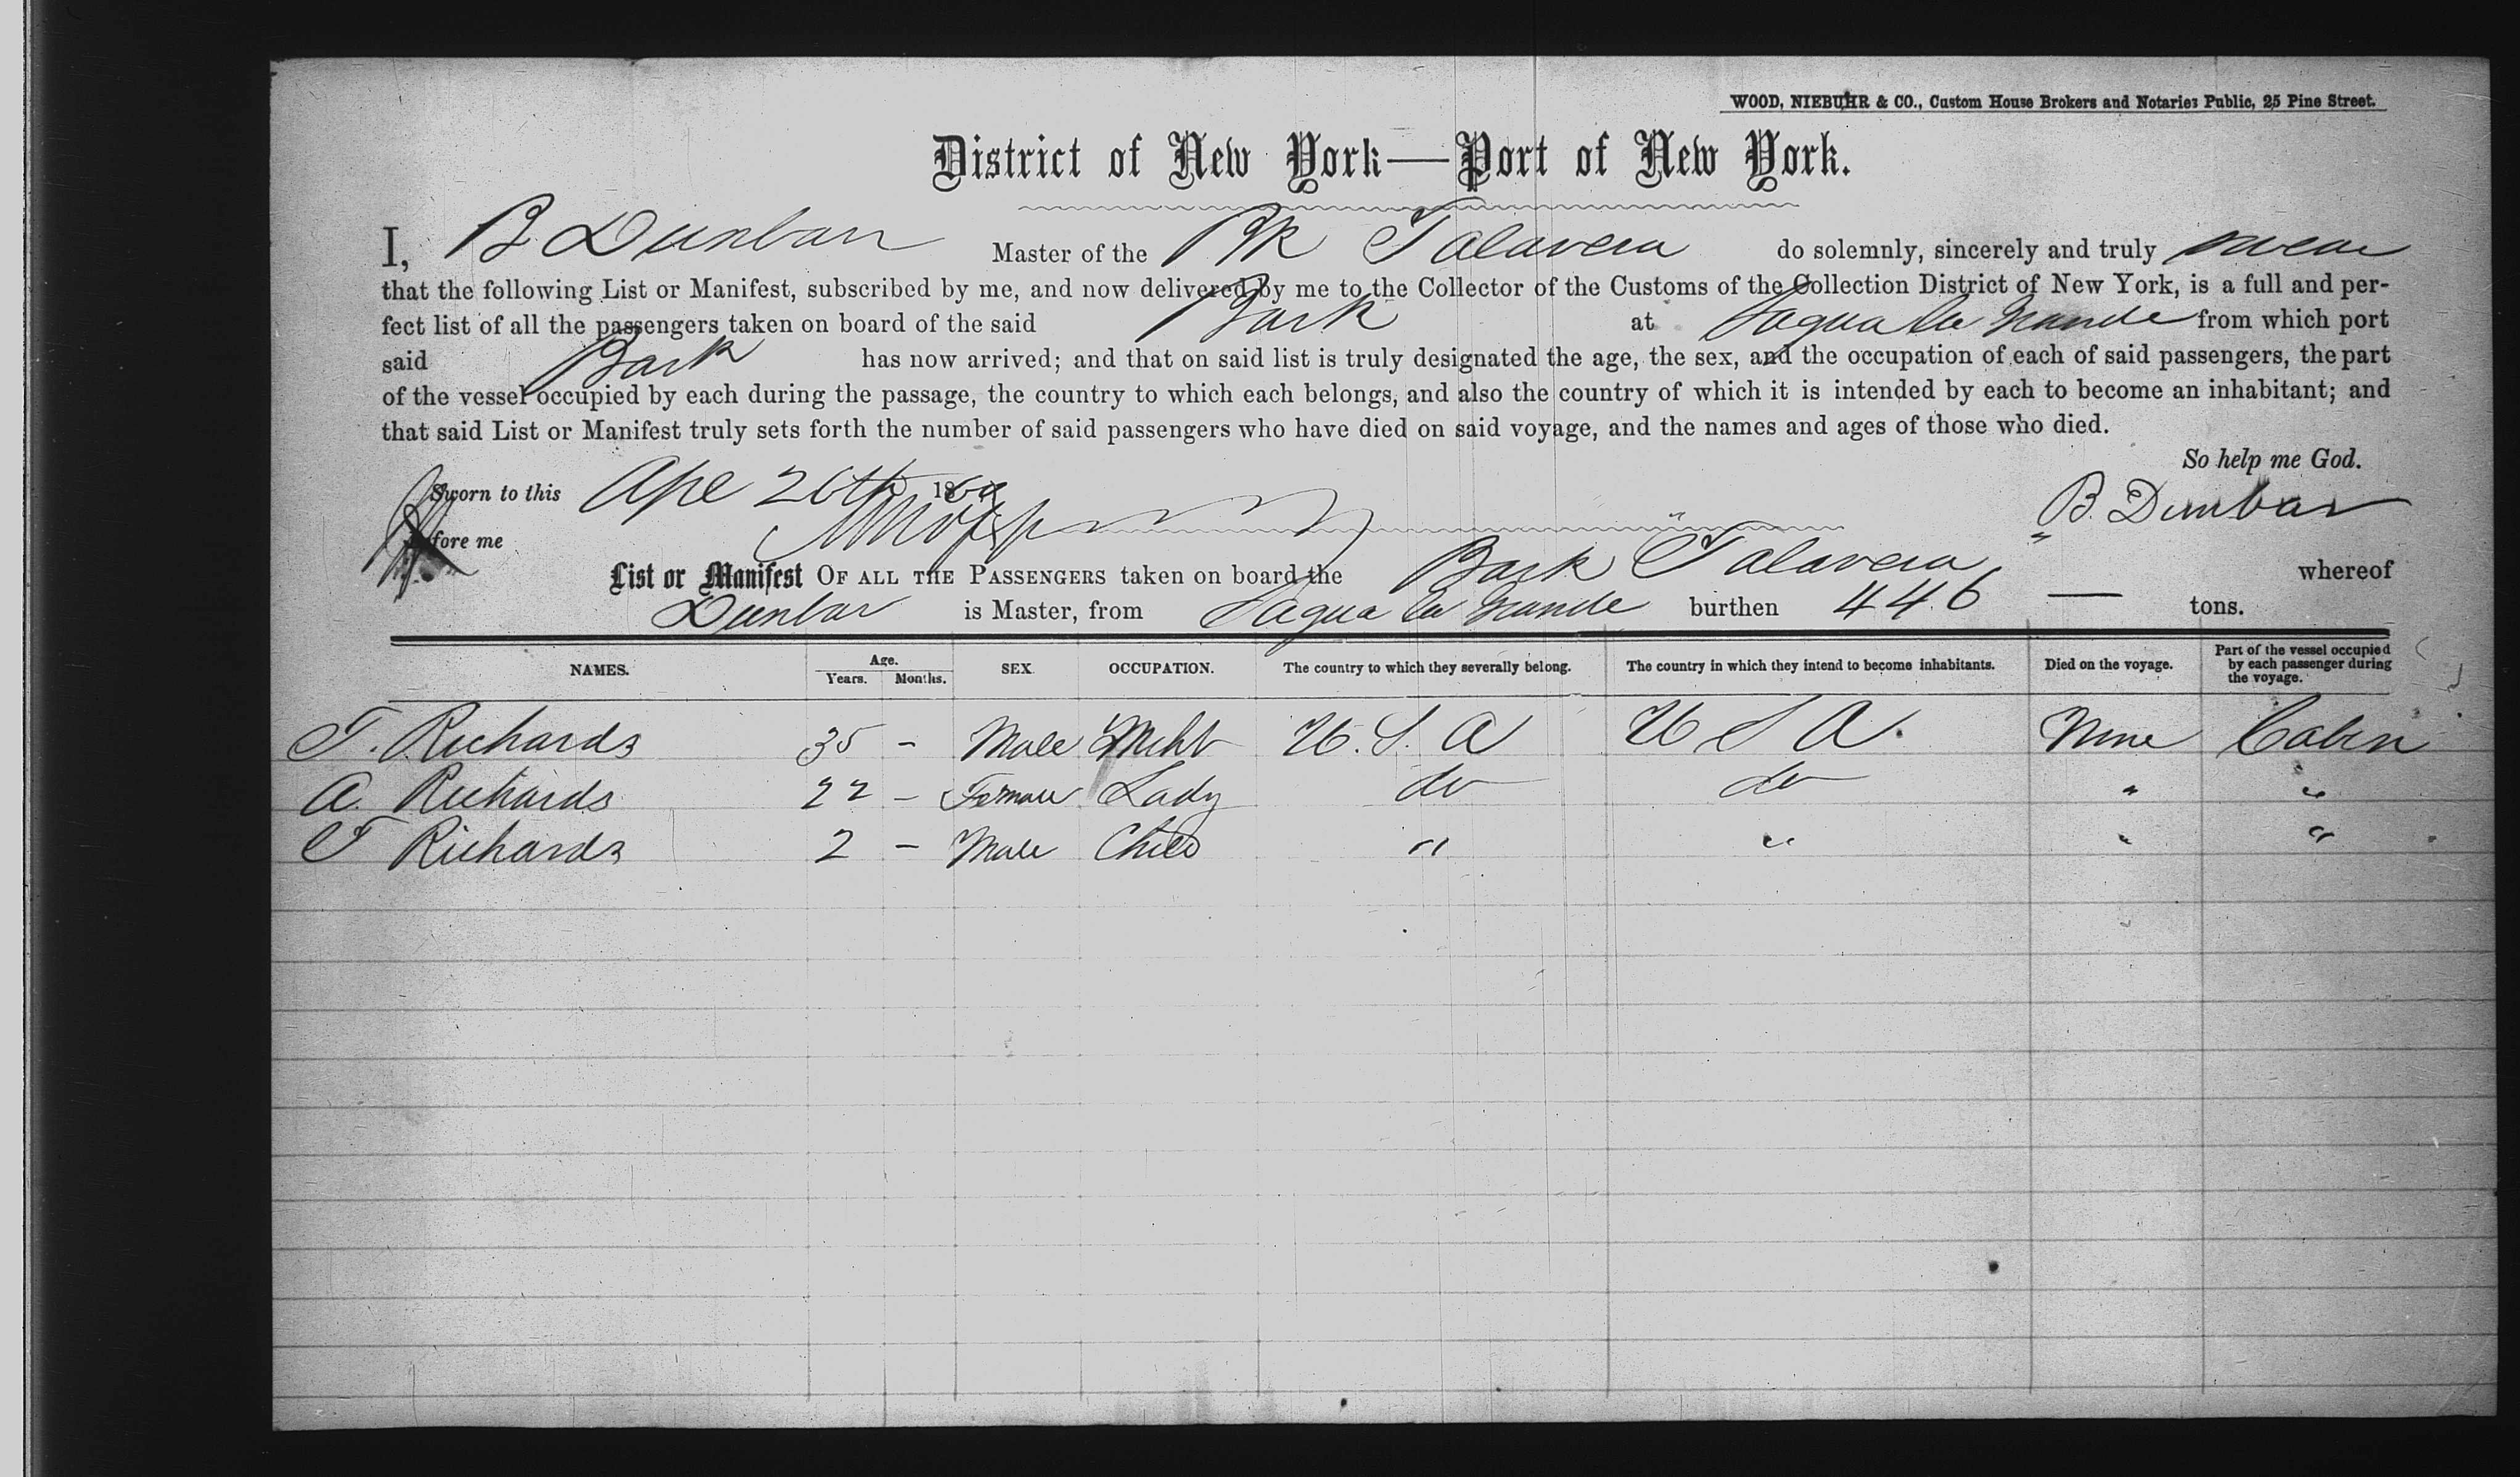 WOOD, NIEBUHR & CO., Custom House Brokers and Notaries Public, 25 Pine Street.
District of New York—Port of New York.
I, B. Dunbar Master of the Bk Talavera do solemnly, sincerely and truly swear
that the following List or Manifest, subscribed by me, and now delivered by me to the Collector of the Customs of the Collection District of New York, is a full and per-
fect list of all the passengers taken on board of the said Bark at Sagua la Grande from which port
said Bark has now arrived; and that on said list is truly designated the age, the sex, and the occupation of each of said passengers, the part
of the vessel occupied by each during the passage, the country to which each belongs, and also the country of which it is intended by each to become an inhabitant; and
that said List or Manifest truly sets forth the number of said passengers who have died on said voyage, and the names and ages of those who died.
So help me God.
Sworn to this Apl 26th 186
B. Dunbar
Before me
List or Manifest OF ALL THE PASSENGERS taken on board the Bark Talavera whereof
Dunbar is Master, from Sagua la Grande burthen 446 — tons.
NAMES. Age. Years. Months. SEX. OCCUPATION. The country to which they severally belong. The country in which they intend to become inhabitants. Died on the voyage. Part of the vessel occupied by each passenger during the voyage.
T. Richards 35 - Male Mcht U.S.A U S A. None Cabin
A. Richards 22 - Female Lady do do " "
T Richards 2 - Male Child " " " "